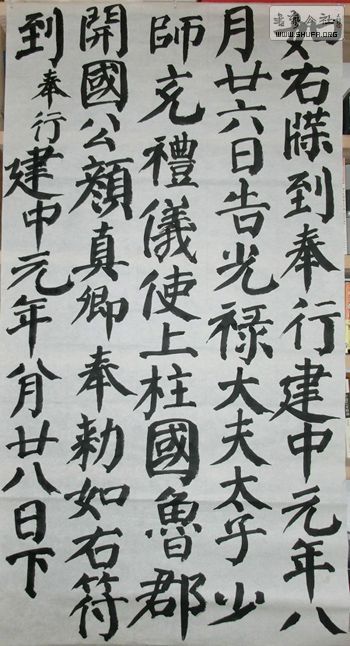 如右牒到奉行建中元年八
月廿六日告光禄大夫太子少
師充禮儀使上柱國魯郡
開國公顏真卿奉勅如右符
到奉行建中元年八月廿八日下
WWW.SHUFA.ORG